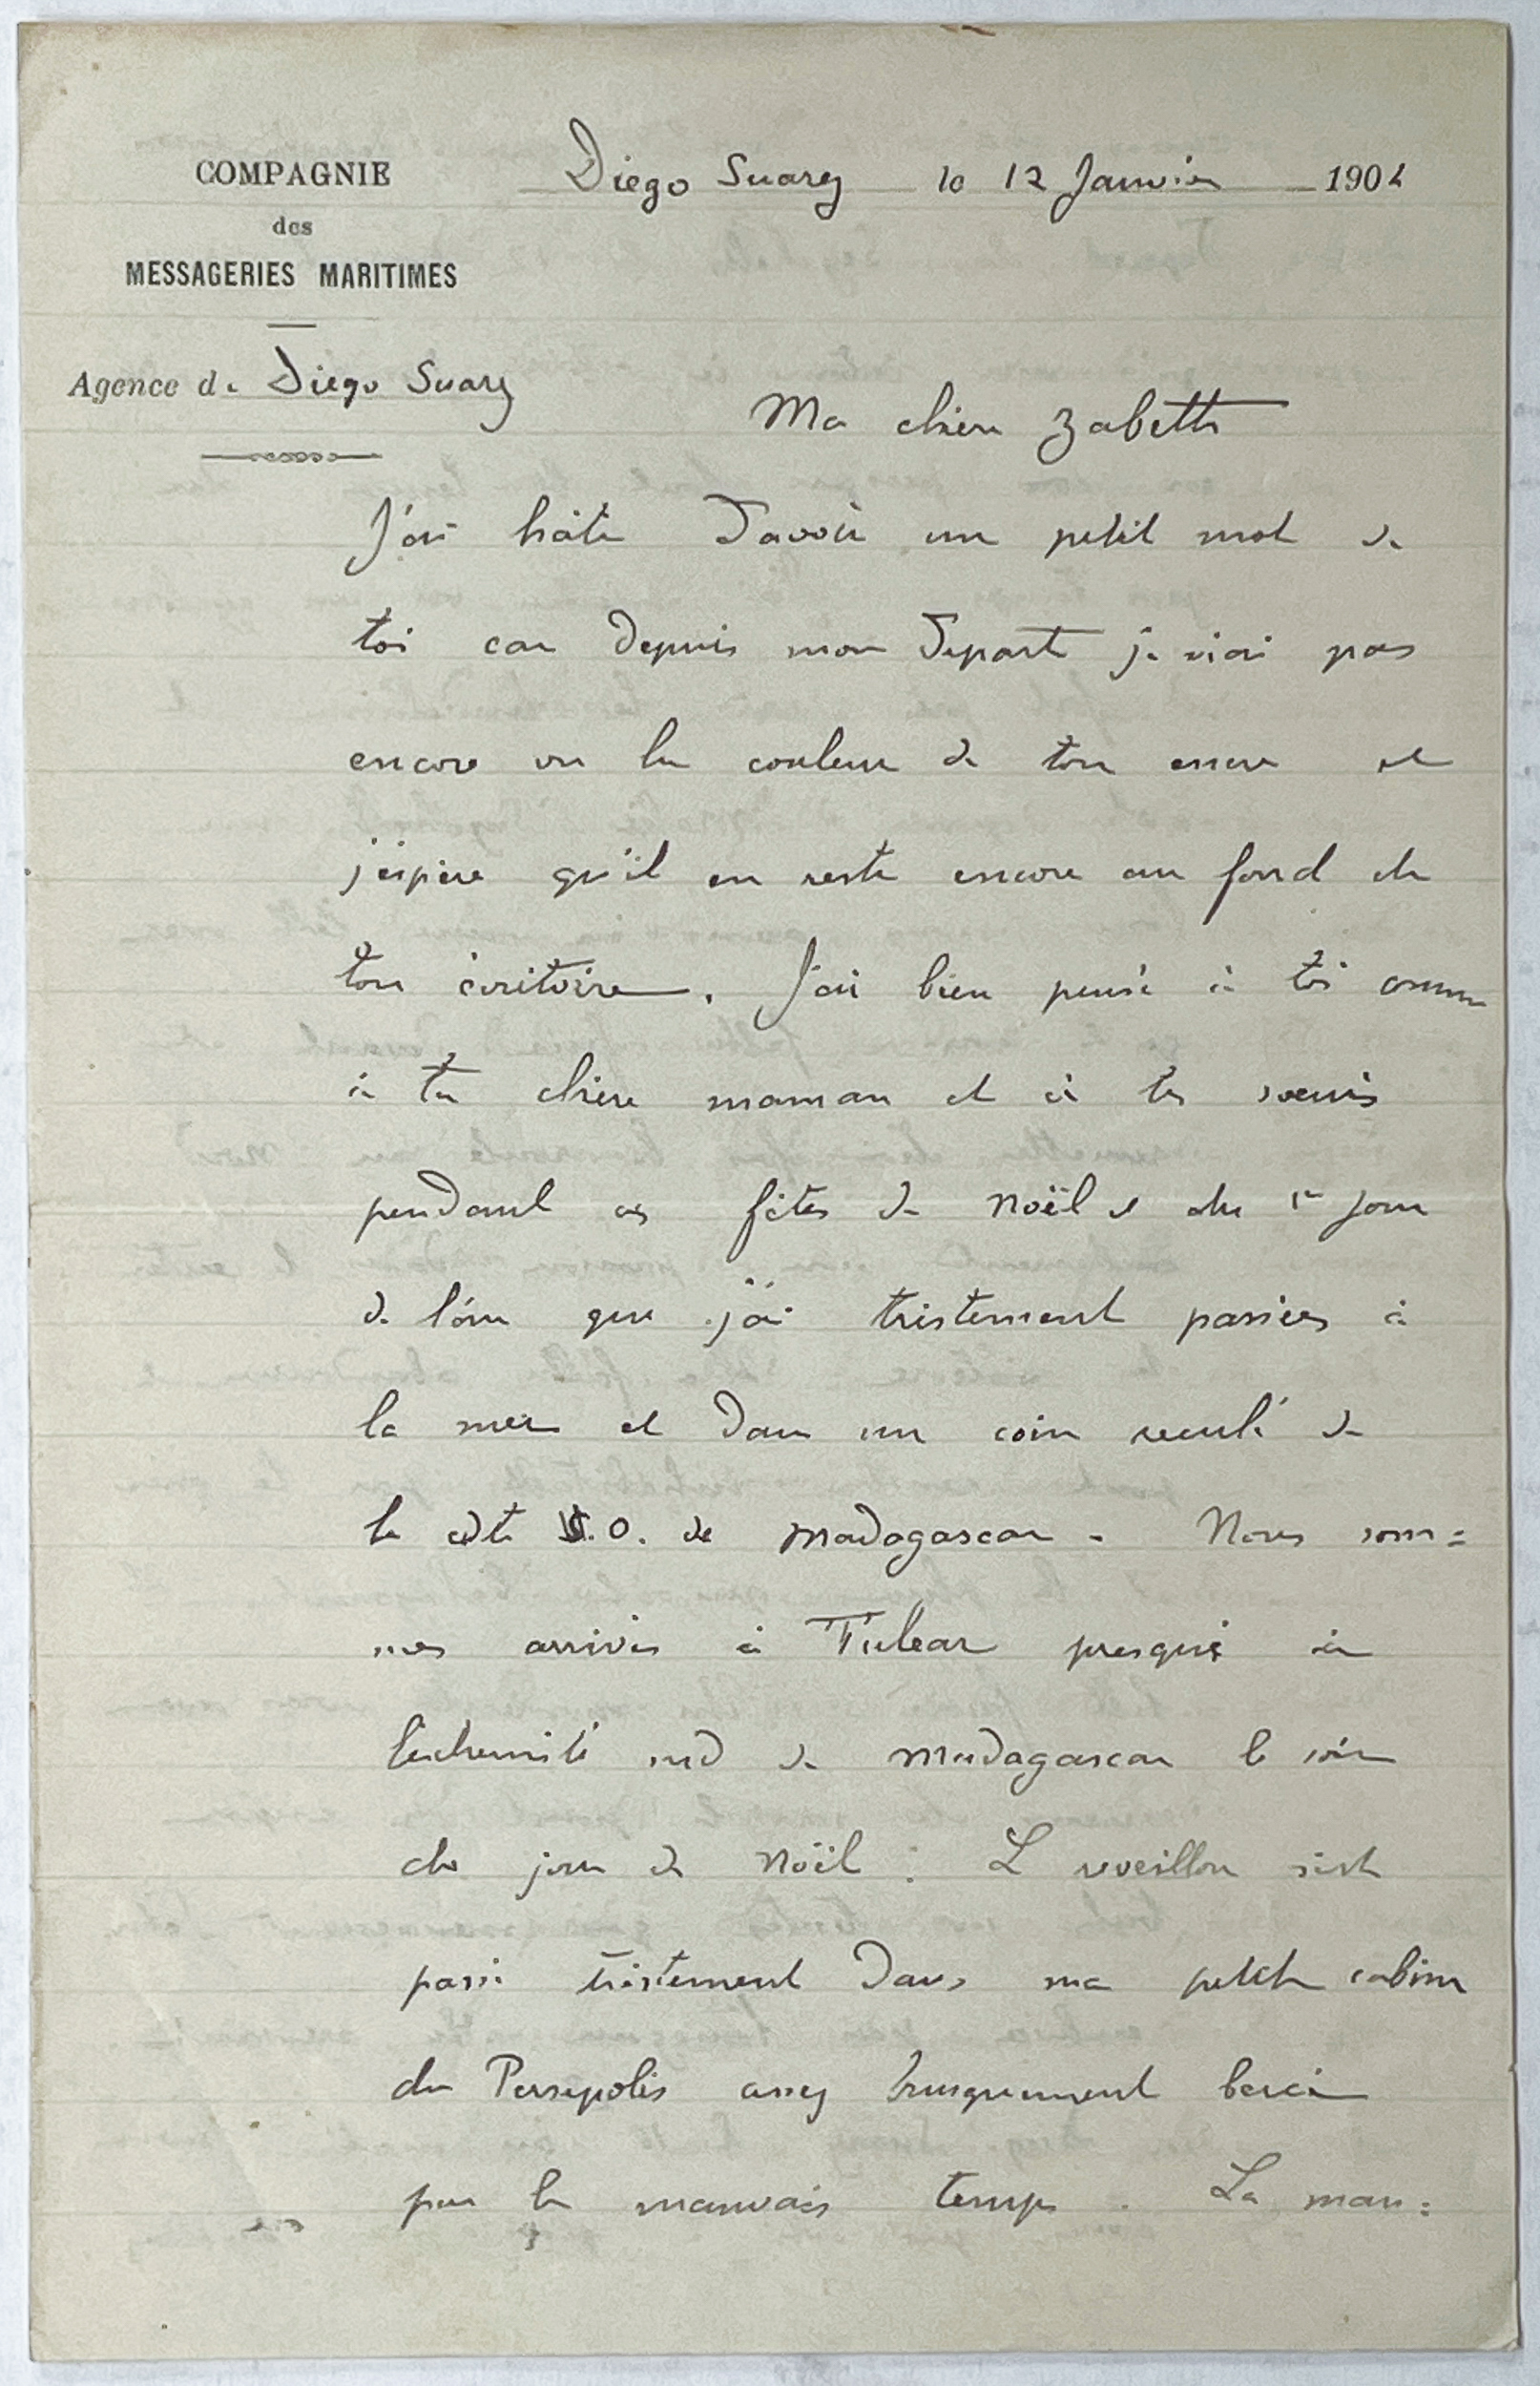 COMPAGNIE
des
MESSAGERIES MARITIMES
Agence de Diego Suarez
Diego Suarez le 12 Janvier 1902
Ma chère Zabette
J'ai hâte d'avoir un petit mot de
toi car depuis mon départ je n'ai pas
encore vu la couleur de ton encre et
j'espère qu'il en reste encore au fond de
ton écritoire. J'ai bien pensé à toi comme
à ta chère maman et à tes soeurs
pendant ces fêtes de Noël et du 1er jour
de l'an que j'ai tristement passées à
la mer et dans un coin reculé de
la côte S.O. de Madagascar. Nous som=
mes arrivés à Tulear presque à
l'extremité sud de Madagascar le soir
du jour de Noël : Le reveillon s'est
passé tristement dans ma petite cabine
du Persepolis assez brusquement bercé
par le mauvais temps. La mau=